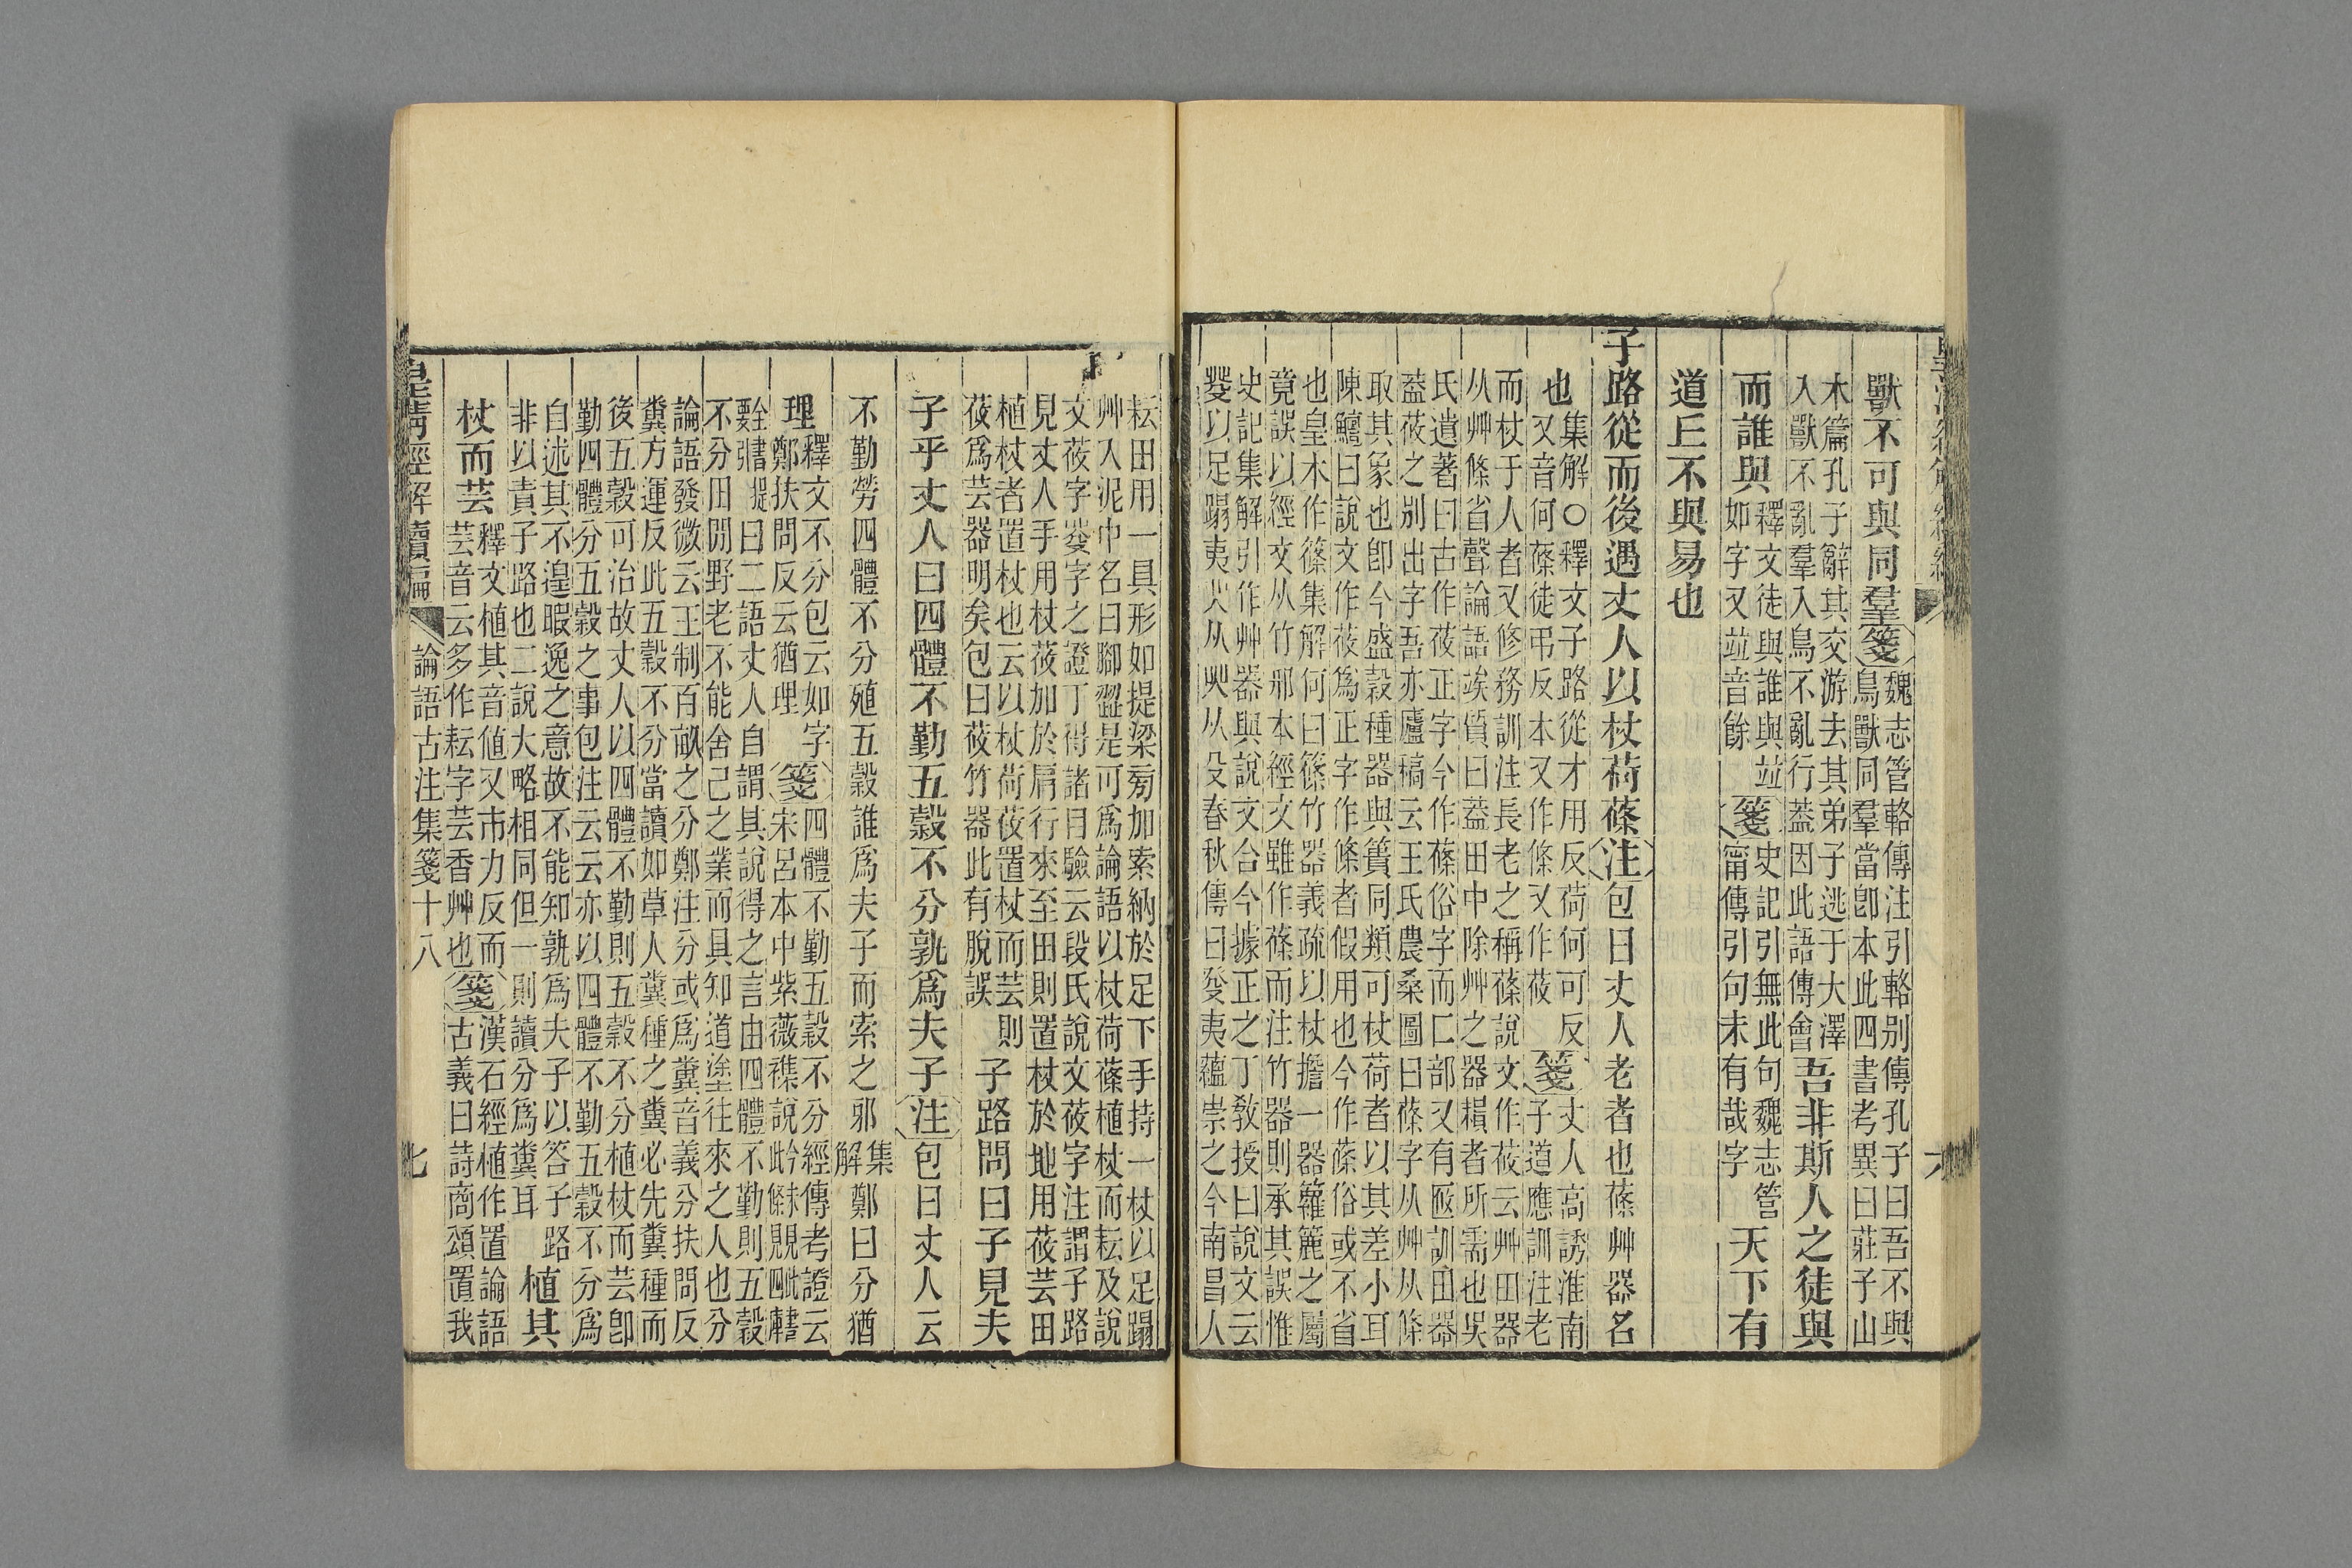 獸不可與同羣箋魏志管輅傳注引輅别傳孔子曰吾不與
鳥獸同羣當卽本此四書考異曰莊子山
木篇孔子辭其交游去其弟子逃于大澤
入獸不亂羣入鳥不亂行蓋因此語傳會吾非斯人之徒與
而誰與釋文徒與誰與竝
如字又竝音餘箋史記引無此句魏志管
甯傳引句末有哉字天下有
道丘不與易也
子路從而後遇丈人以杖荷蓧注包曰丈人老者也蓧艸器名
也集解○釋文子路從才用反荷何可反
又音何蓧徒弔反本又作條又作莜箋丈人高誘淮南
子道應訓注老
而杖于人者又修務訓注長老之稱蓧說文作莜云艸田器
从艸條省聲論語竢質曰蓋田中除艸之器耨者所需也吳
氏遺著曰古作莜正字今作蓧俗字而匚部又有匧訓田器
蓋莜之别出字吾亦廬稿云王氏農桑圖曰蓧字从艸从條
取其象也卽今盛穀種器與簣同類可杖荷者以其差小耳
陳鱣曰說文作莜爲正字作條者假用也今作蓧俗或不省
也皇本作篠集解何曰篠竹器義疏以杖擔一器籮簏之屬
竟誤以經文从竹邢本經文雖作蓧而注竹器則承其誤惟
史記集解引作艸器與說文合今據正之丁敎授曰說文云
癹以足蹋夷艸从癶从殳春秋傳曰癹夷蘊崇之今南昌人
耘田用一具形如提梁旁加索納於足下手持一杖以足蹋
艸入泥中名曰腳澀是可爲論語以杖荷蓧植杖而耘及說
文莜字癹字之證丁得諸目驗云段氏說文莜字注謂子路
見丈人手用杖莜加於肩行來至田則置杖於地用莜芸田
植杖者置杖也云以杖荷莜置杖而芸則
莜爲芸器明矣包曰莜竹器此有脫誤子路問曰子見夫
子乎丈人曰四體不勤五穀不分孰爲夫子注包曰丈人云
不勤勞四體不分殖五穀誰爲夫子而索之邪集解鄭曰分猶
理釋文不分包云如字
鄭扶問反云猶理箋四體不勤五穀不分經傳考證云
宋呂本中紫薇襍說
曰二語丈人自謂其說得之言由四體不勤則五穀
不分田閒野老不能舍己之業而具知道塗往來之人也分
論語發微云王制百畝之分鄭注分或爲糞音義分扶問反
糞方運反此五穀不分當讀如草人糞種之糞必先糞種而
後五穀可治故丈人以四體不勤則五穀不分植杖而芸卽
勤四體分五穀之事包注云云亦以四體不勤五穀不分爲
自述其不遑暇逸之意故不能知孰爲夫子以答子路
非以責子路也二說大略相同但一則讀分爲糞耳植其
杖而芸釋文植其音値又市力反而
芸音云多作耘字芸香艸也箋漢石經植作置論語
古義曰詩商頌置我
皇清經解續編
論語古注集箋十八
七